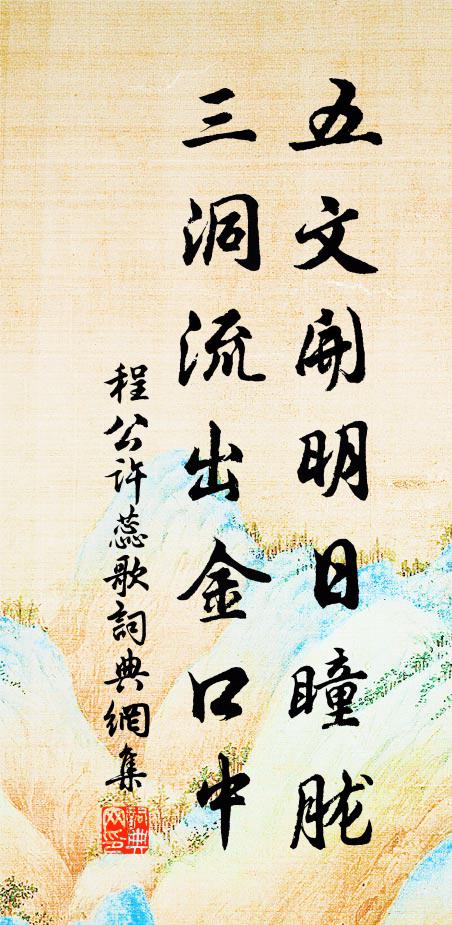 五文開明日瞳胧
三洞流出金口中
程公許蕊歌詞典網集
詞典
网印